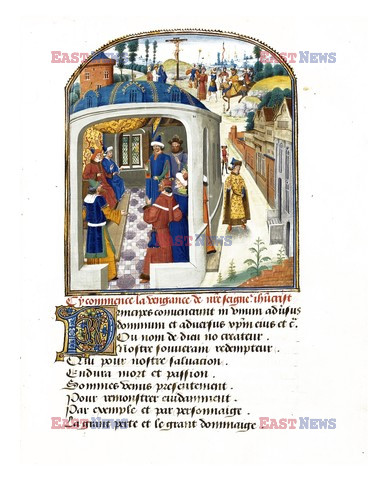 EASTNEWS EASTNEWS
Cy commence la vengance de nrē seigñ ihūcrist
Principes convenerunt in vnum aduersus
dominum et aduersus xp̄m eius et c̄.
Ou nom de dieu no createur .
Nostre souuerain redempteur .
Qui pour nostre saluation .
Endura mort et passion .
Sommes venus presentement .
Pour remonstrer euidamment .
Par exemple et par personnaige .
La grant perte et le grant dommaige .
EASTNEWS EASTNEWS